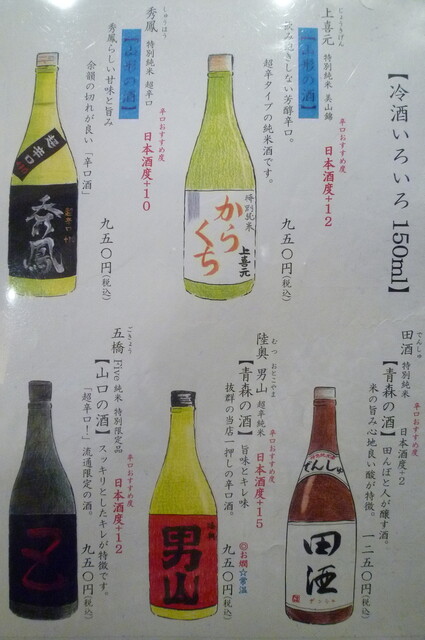 【冷酒いろいろ 150ml】
じょうきげん
上喜元 特別純米 美山錦
辛口おすすめ度
日本酒度+12
【山形の酒】
飲み飽きしない芳醇辛口。
超辛タイプの純米酒です。
九五〇円(税込)
特別純米
からくち
上喜元
しゅうほう
秀鳳 特別純米 超辛口
辛口おすすめ度
日本酒度+10
【山形の酒】
秀鳳らしい甘味と旨み
余韻の切れが良い「辛口酒」
九五〇円(税込)
超辛口
秀鳳
でんしゅ
田酒 特別純米
辛口おすすめ度
日本酒度+2
【青森の酒】 田んぼと人が醸す酒。
米の旨み心地良い酸が特徴。
一二五〇円(税込)
でんしゅ
田酒
むつ おとこやま
陸奥 男山 超辛純米
辛口おすすめ度
日本酒度+15
【青森の酒】 旨味とキレ味
抜群の当店一押しの辛口酒。
◎お燗☆常温
九五〇円(税込)
男山
ごきょう
五橋 Five 純米 特別限定品
辛口おすすめ度
日本酒度+12
【山口の酒】 スッキリとしたキレが特徴です。
「超辛口!」流通限定の酒。
九五〇円(税込)